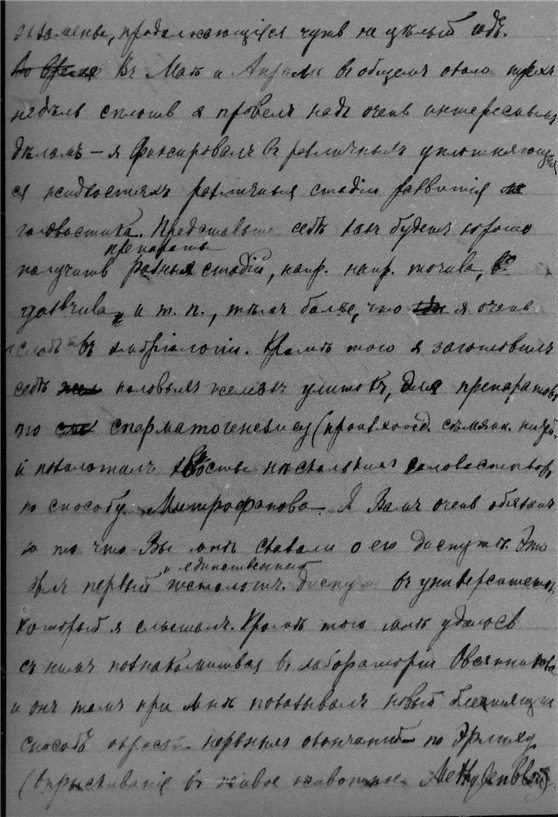 экзамены, продолжающіеся чуть не цѣлый годъ.
Въ Маѣ и Апрѣлѣ въ общемъ около трехъ
недѣль сплошь я провелъ надъ очень интереснымъ
дѣломъ — я фиксировалъ въ различныхъ уплотняющих
ся жидкостяхъ различныя стадіи развитія
головастика. Представьте себѣ какъ будетъ хорошо
получить препараты разныхъ стадій, напр. напр. почива,
и т. п., тѣмъ болѣе, что я очень
слабъ въ эмбріологіи. Кромѣ того я заготовилъ
себѣ половыхъ железъ улитокъ, для препаратовъ
по сперматогенезису (происхожд. сѣмян.
и позолотилъ хвосты нѣсколькихъ головастиковъ
по способу Митрофанова. Я Вамъ очень обязанъ
за то что Вы мнѣ сказали о его диспутѣ. Это
былъ первый и единственный гистологич. диспутъ въ университетѣ,
который я слышалъ. Кромѣ того мнѣ удалось
съ нимъ познакомиться въ лабораторіи Овсянникова
и онъ тамъ при мнѣ показывалъ новый блестящій
способъ окраски нервныхъ окончаній по Эрлиху
(впрыскиваніе въ живое животное Methylenblau)